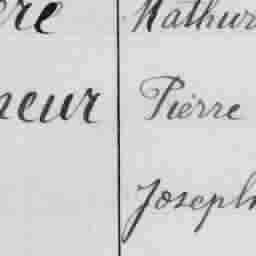 ère Mathur
neur Pierre
Joseph